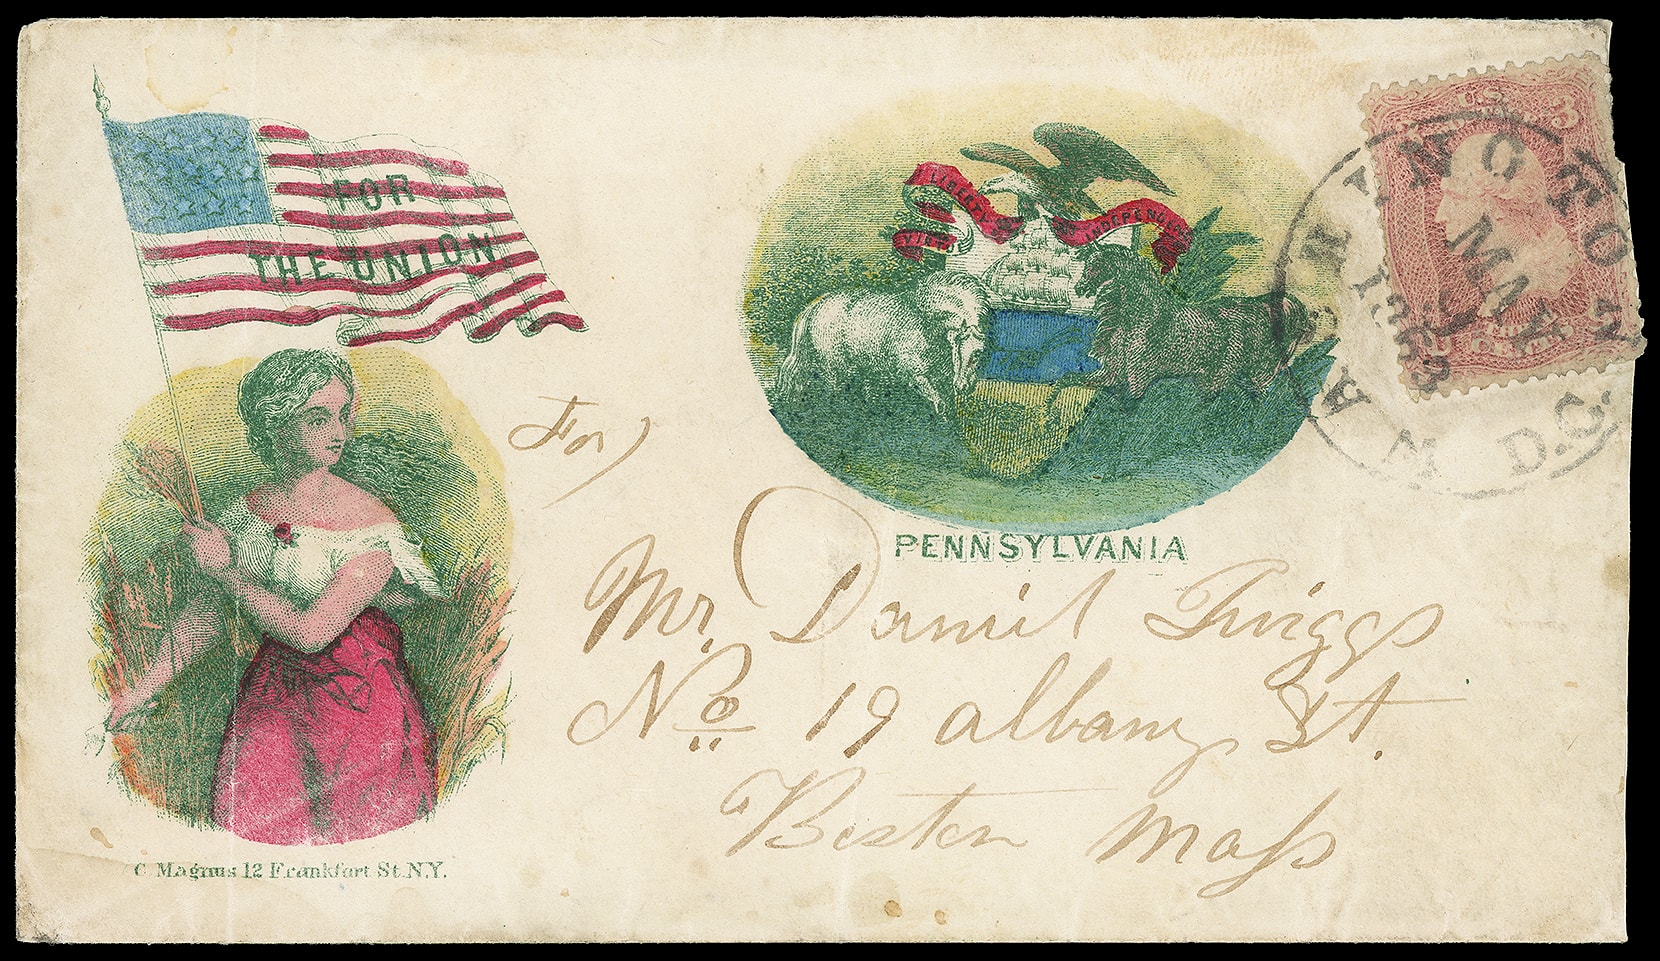 FOR
THE UNION
C Magnus 12 Frankfort St. N.Y.
VIRTUE
LIBERTY
INDEPENDENCE
PENNSYLVANIA
U.S.
3
WASHINGTON
D.C.
MAY
9
1863
For
Mr. Daniel Twiggs
No 19 Albany St.
Boston Mass